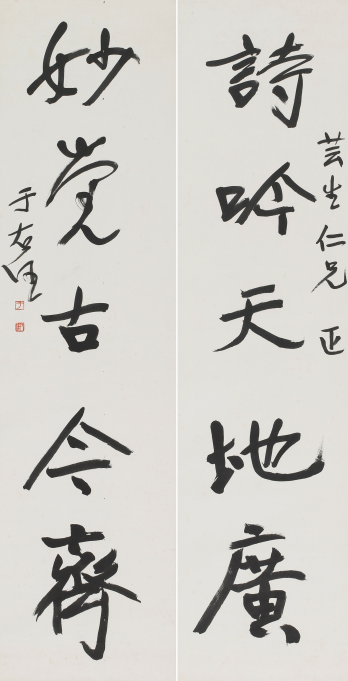 芸生仁兄 正
詩吟天地廣
妙覺古今齊
于右任